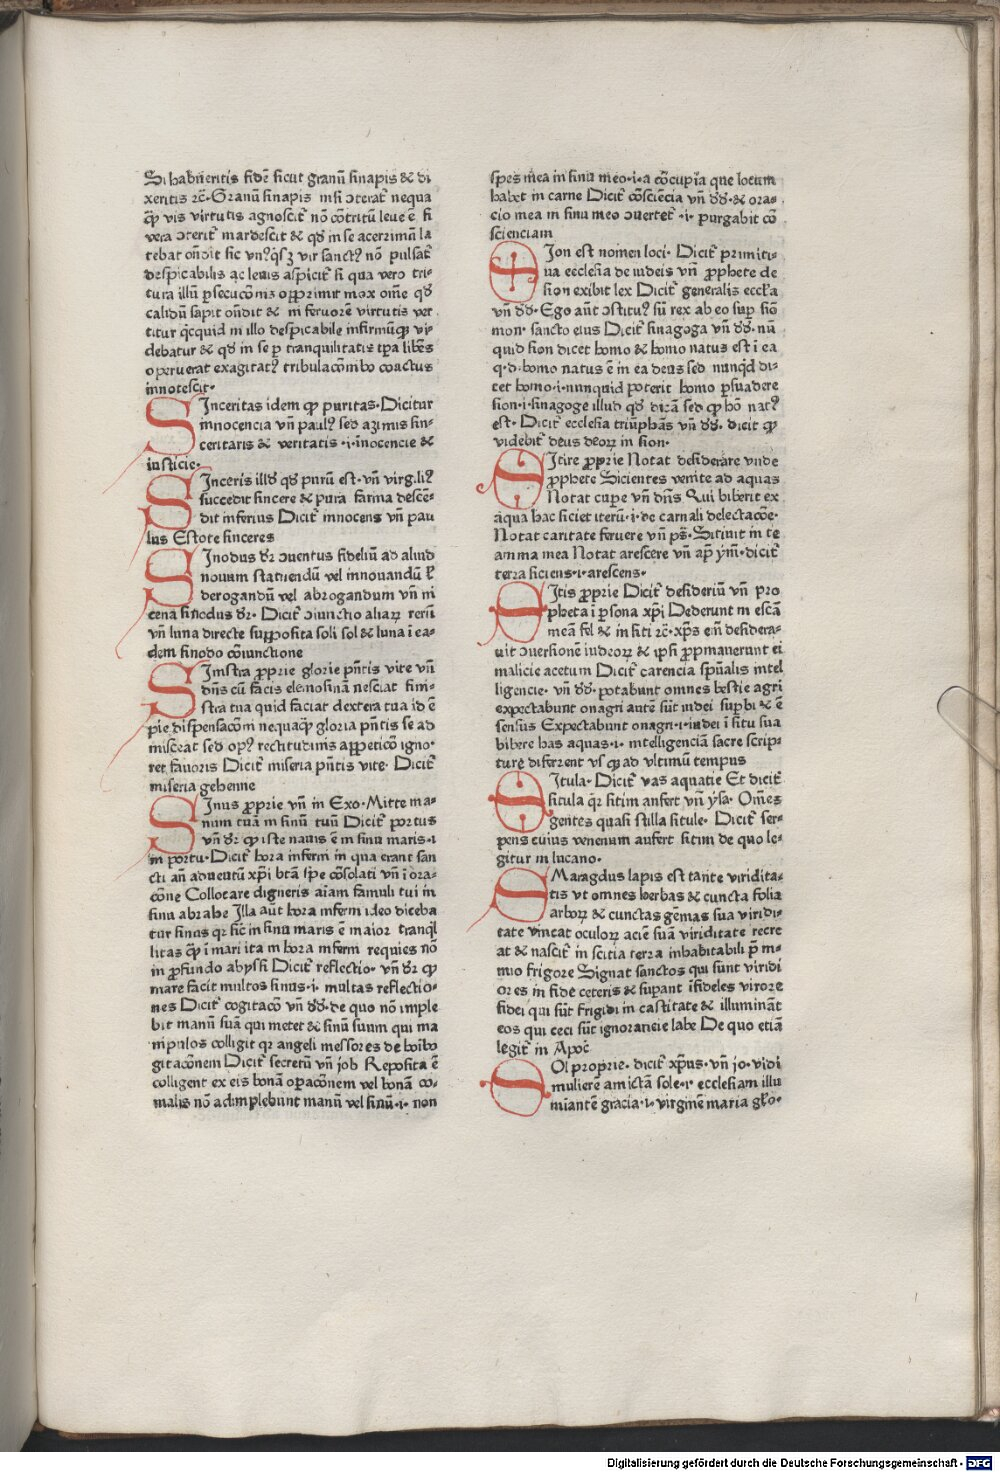 Si habueritis fidē sicut granū sinapis & di
xeritis ⁊c̄· Granū sinapis nisi ↄteratᷣ nequa
qᷓ vis virtutis agnoscitᷣ nō cōtritū leue ē si
vera ↄteritᷣ inardescit & qđ in se acerrimū la
tebat on̄dit sic vnꝰqsqꝫ vir sanctꝰ nō pulsatᷣ
despicabilis ac leuis aspicitᷣ si qua vero tri-
tura illū ꝑsecucōnis opprimit mox om̄e qđ
calidū sapit on̄dit & in feruorē virtutis ver
titur qͥcquid in illo despicabile infirmūqꝫ vi-
debatur & qđ in se ꝑ tranquilitatis tꝑa libēs
operuerat exagitatꝰ tribulacōnibo coactus
innotescit·
SInceritas idem qđ puritas· Dicitur
innocencia vn̄ paulꝰ sed azimis sin-
ceritatis & veritatis ·i· īnocencie &
iusticie·
SInceris illđ qđ purū est· vn̄ virg.liꝰ
succedit sincere & pura farina descē-
dit inferius Dicitᷣ innocens vn̄ pau
lus Estote sinceres
SInodus dr̄ ↄuentus fideliū ad aliud
nouum statuendū vel innouandū ł
derogandū vel abrogandum vn̄ ni
cena sinodus dr̄· Dicitᷣ ↄiunctio aliarꝫ rerū
vn̄ luna directe supposita soli sol & luna ī ea-
dem sinodo cōiunctione
SInistra ꝓprie glorie pn̄tis vite vn̄
dn̄s cū facis elemosinā nesciat sini-
stra tua quid faciat dextera tua id ē
pie dispensacōni nequaqᷓ gloria pn̄tis se ad
misceat sed opꝰ rectitudinis appeticō igno-
ret fauoris Dicitᷣ miseria pn̄tis vite· Dicitᷣ
miseria gehenne
SInus ꝓprie vn̄ in Exo· Mitte ma-
num tuā in sinū tuū Dicitᷣ portus
vn̄ dr̄ qđ iste nauis ē in sinu maris·i·
in portu· Dicitᷣ hora inferni in qua erant san
cti an̄ aduentū xp̄i btām spe cōsolati vn̄ ī ora-
cōne Collocare digneris aīam famuli tui in
sinu abrahe Illa aūt hora inferni ideo diceba
tur sinus qr sic̄ in sinu maris ē maior tranqͥl
litas qᷓ ī mari ita in hora inferni requies nō
in ꝓfundo abyssi Dicitᷣ reflectio· vn̄ dr̄ qđ
mare facit multos sinus·i· multas reflectio-
nes Dicitᷣ cogitacō vn̄ dđ· de quo nō imple
bit manū suā qui metet & sinū suum qui ma
nipulos colligit qr angeli messores de boībo
gitacōnem Dicitᷣ secretū vn̄ job Reposita ē
colligent ex eis bonā oꝑacōnem vel bonā co-
malis nō adimplebunt manū vel sinū·i· non
spes mea in sinu meo·i· a cōcupīa que locum
habet in carne Dicitᷣ cōsciēcia vn̄ dđ·& ora-
cio mea in sinu meo ↄuertetᷣ ·i· purgabit cō
scienciam
SIon est nomen loci· Dicitᷣ primiti-
ua ecclesia de iudeis vn̄ ꝓphete de
sion exibit lex Dicitᷣ generalis eccl̄ia
vn̄ dđ· Ego aūt ↄstitutꝰ sū rex ab eo suꝑ siō
mon· sancto eius Dicitᷣ sinagoga vn̄ dđ· nū
quid sion dicet homo & homo natus est ī ea
q·d· homo natus ē in ea deus sed nunqͥd di-
cet homo·i· nunquid poterit homo ꝑsuadere
sion·i· sinagoge illud qđ dicā sed qđ hō natꝰ
est· Dicitᷣ ecclesia triūphās vn̄ dđ· dicit qđ
videbitᷣ deus deorꝫ in sion·
SItire ꝓprie Notat desiderare vnde
ꝓphete Sicientes venite ad aquas
Notat cuꝑe vn̄ dn̄s Qui biberit ex
aqua hac siciet iterū·i· de carnali delectacōe·
Notat caritate feruere vn̄ ps̄· Sitiuit in te
anima mea Notat arescere vn̄ ap̄ ym̄· dicitᷣ
terra siciens·i· arescens·
SItis ꝓprie Dicitᷣ desideriū vn̄ pro
pheta ī ꝑsona xp̄i Dederunt in escā
meā fel & in siti ⁊c̄· xp̄s em̄ desidera-
uit ↄuersionē iudeorꝫ & ipsi ꝓpinauerunt ei
malicie acetum Dicitᷣ carencia spūalis intel
ligencie· vn̄ dđ· potabunt omnes bestie agri
expectabunt onagri autē sūt iudei suꝑbi & ē
sensus Expectabunt onagri·i· iudei ī situ sua
bibere has aquas·i· intelligenciā sacre scrip-
ture different vsqꝫ ad vltimū tempus
SItula· Dicitᷣ vas aquatie Et dicitᷣ
situla qr sitim aufert vn̄ ysa· Om̄es
gentes quasi stilla situle· Dicitᷣ ser-
pens cuius venenum aufert sitim de quo le-
gitur in lucano·
SMaragdus lapis est tante viridita-
tis vt omnes herbas & cuncta folia
arborꝫ & cunctas gēmas sua viridi-
tate vincat oculorꝫ aciē suā viriditate recre
at & nascitᷣ in scitia terra inhabitabili p̄ ni-
mio frigore Signat sanctos qui sunt viridi
ores in fide ceteris & suꝑant īfideles virore
fidei qui sūt frigidi in castitate & illumināt
eos qui ceci sūt ignorancie labe De quo etiā
legitᷣ in Apoc̄
SOl proprie· dicitᷣ xp̄us· vn̄ jo· vidi
mulierē amictā sole·i· ecclesiam illu
minantē gracia·i· virginē maria glo·
Digitalisierung gefördert durch die Deutsche Forschungsgemeinschaft - DFG